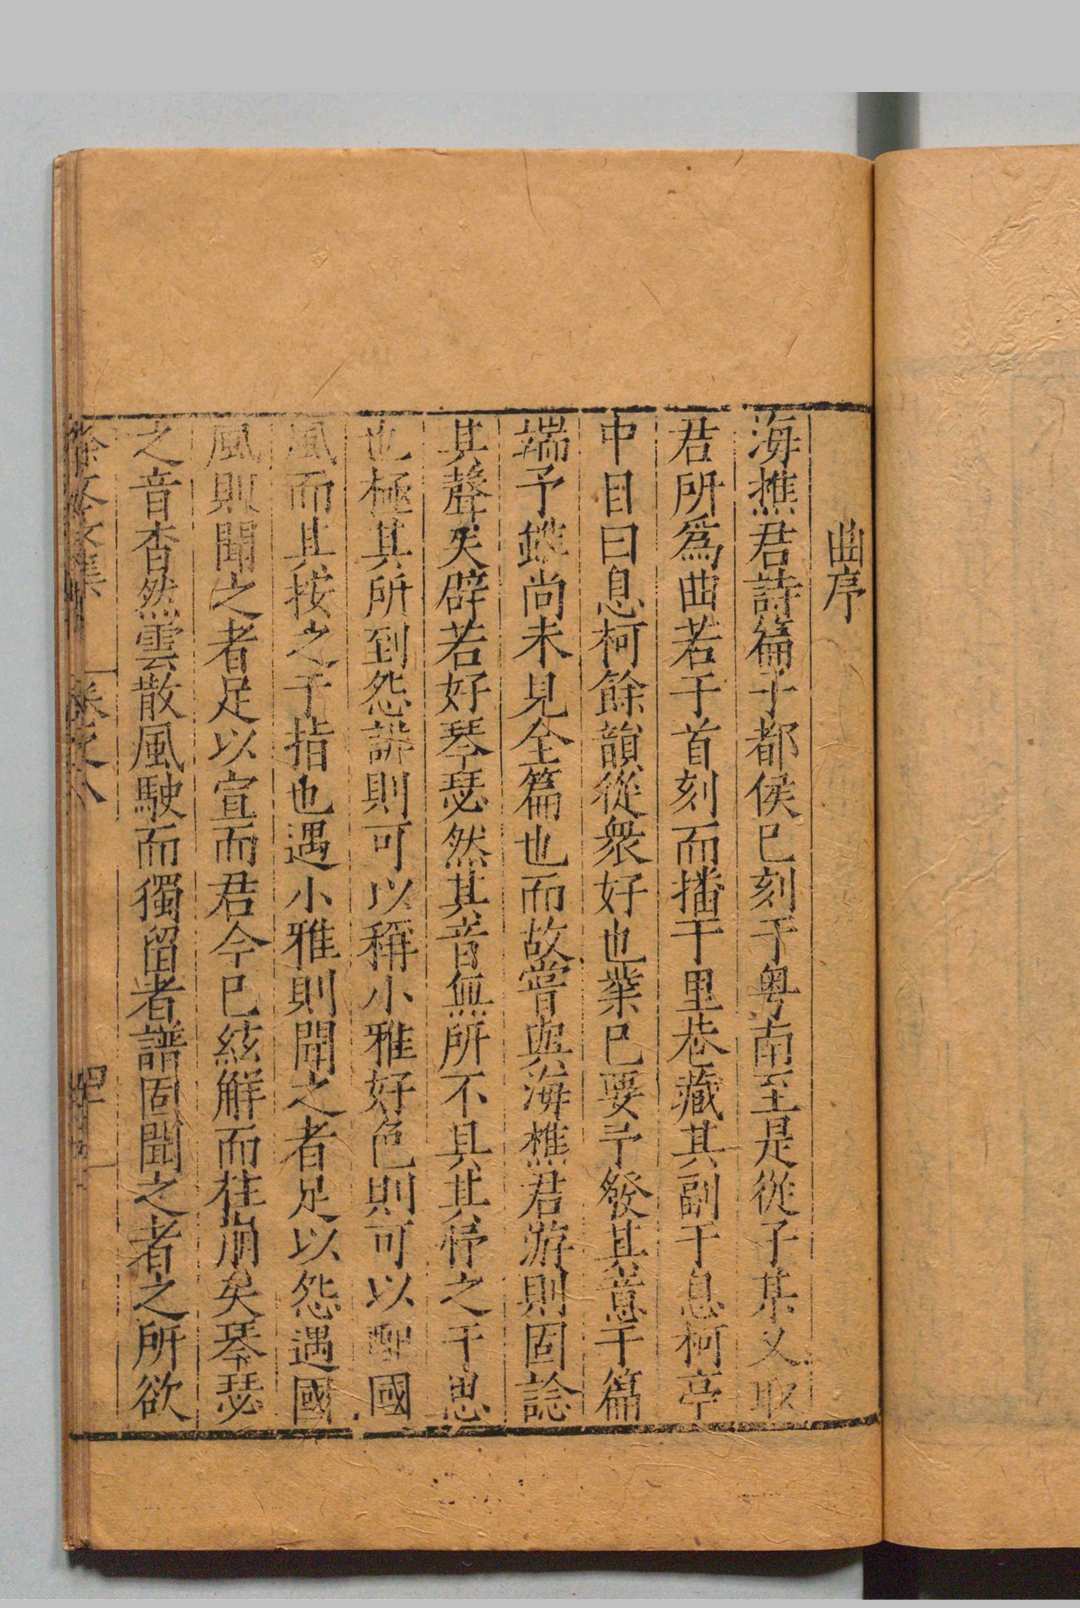 曲序
海樵君詩篇子都侯已刻于粤南至是從子某又取
君所爲曲若干首刻而播于里巷藏其副于息柯亭
中目曰息柯餘韻從衆好也業已要予發其意于篇
端予雖尚未見全篇也而故嘗與海樵君游則固諗
其聲矣辟若好琴瑟然其音無所不具其抒之于思
也極其所到怨誹則可以稱小雅好色則可以配國
風而其按之于指也遇小雅則聞之者足以怨遇國
風則聞之者足以宣而君今已絃解而柱崩矣琴瑟
之音杳然雲散風駛而獨留者譜固聞之者之所欲